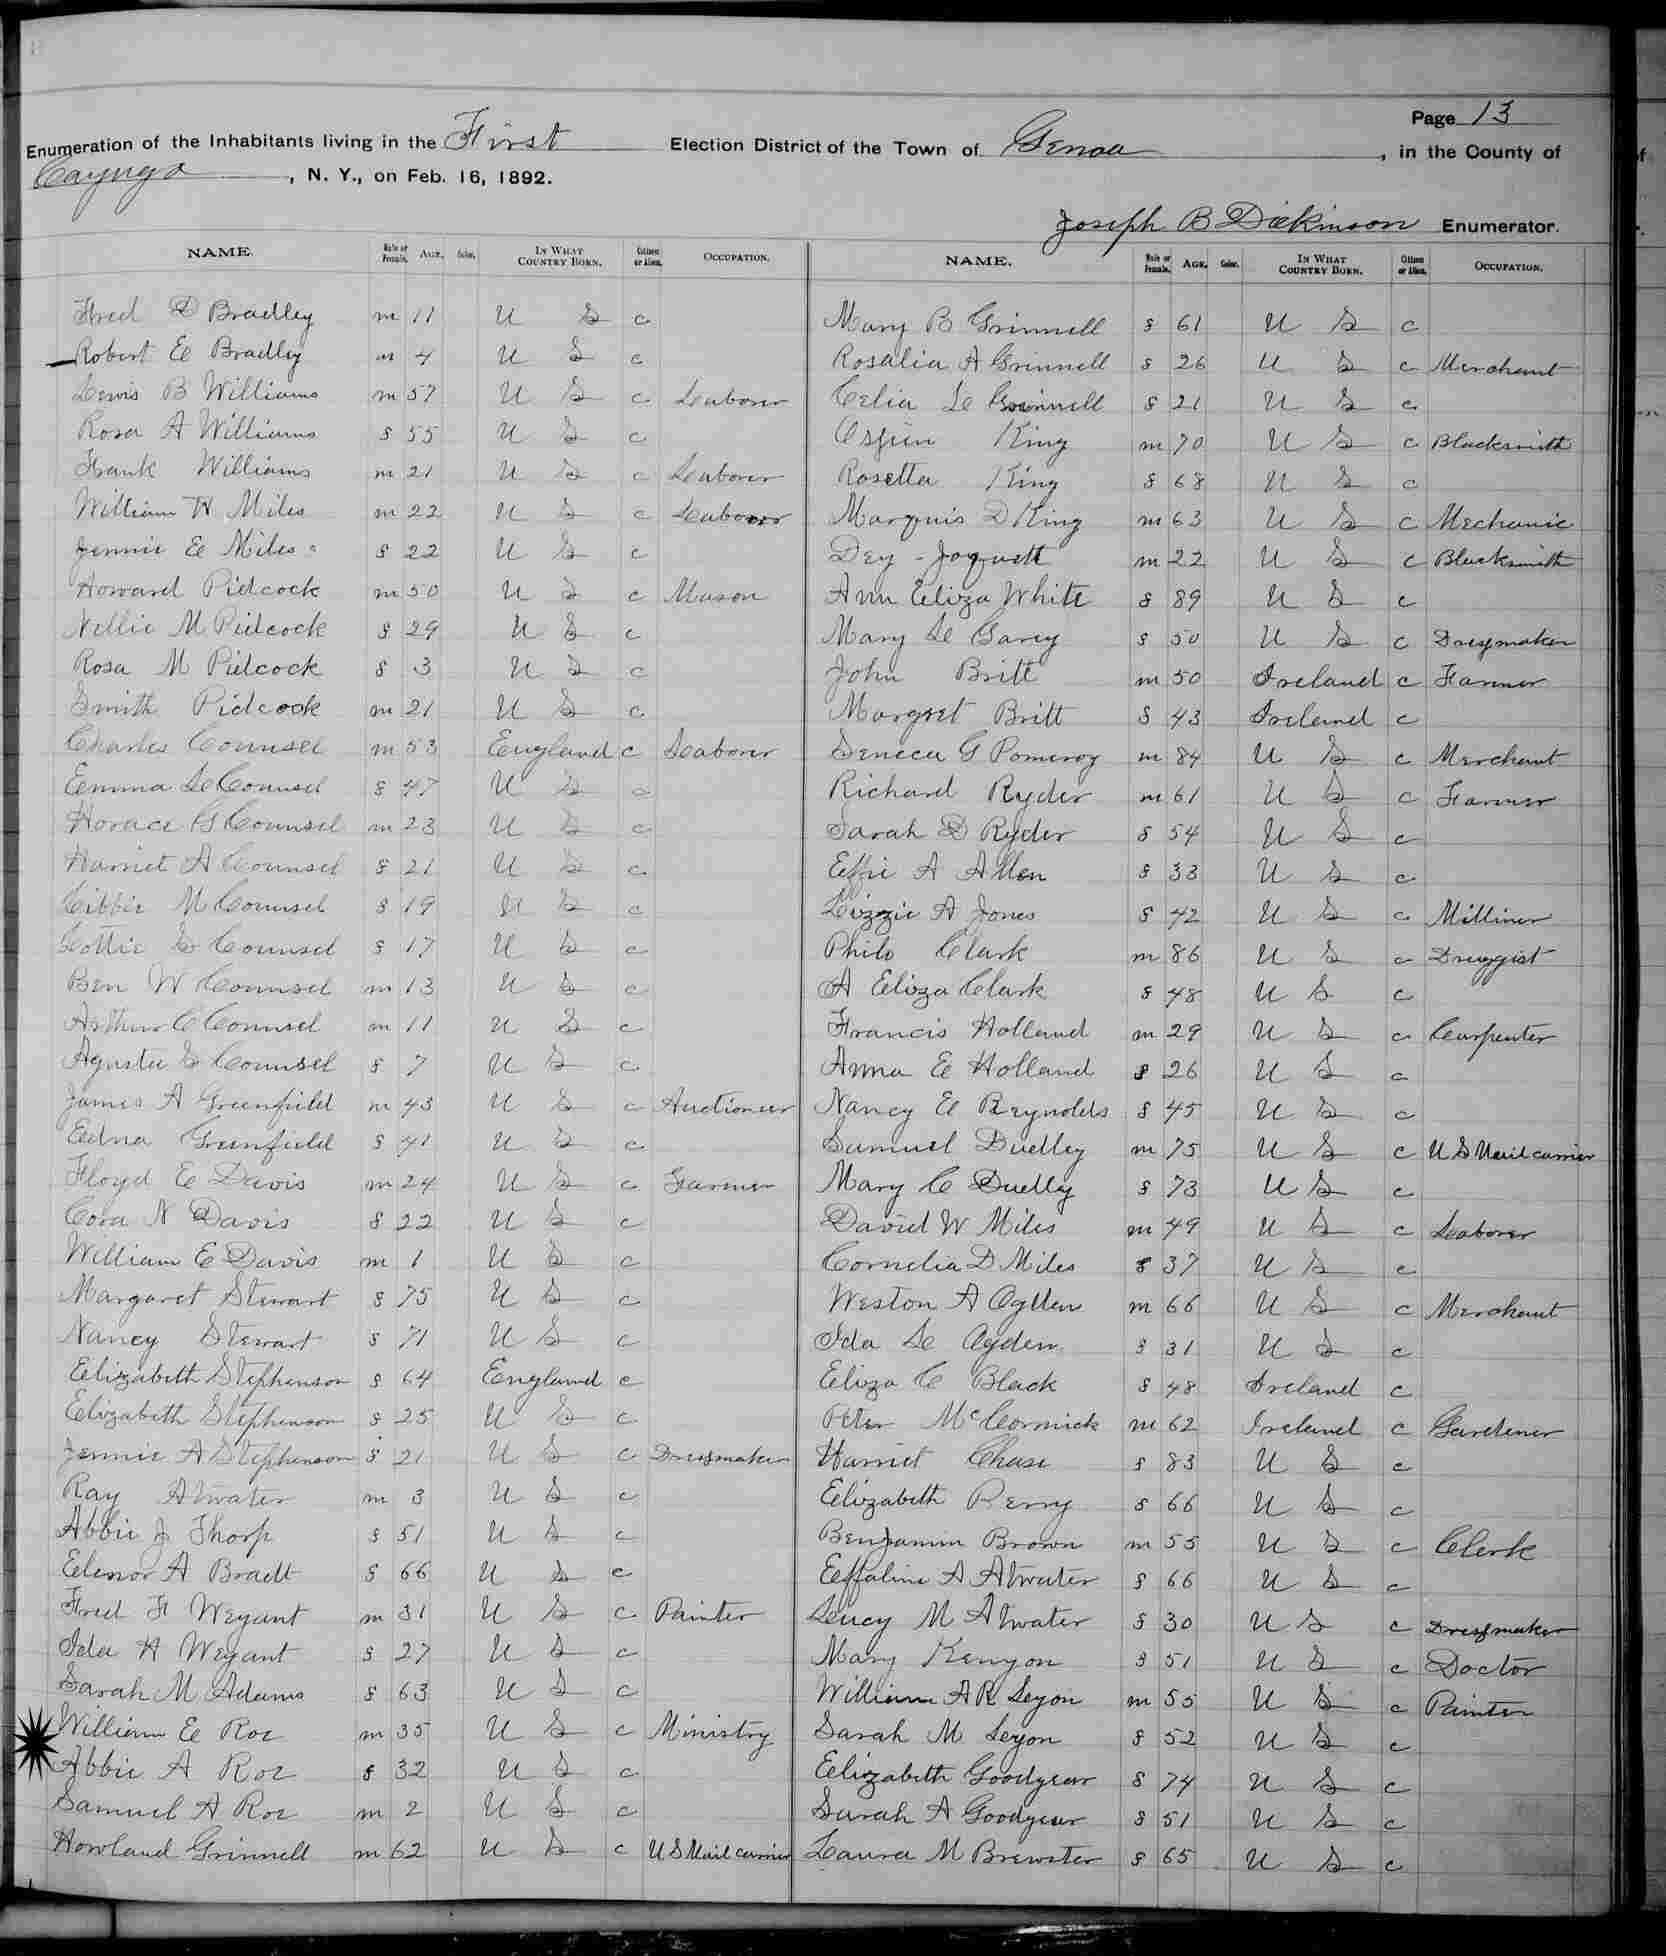 Page 13
Enumeration of the Inhabitants living in the First Election District of the Town of Genoa, in the County of
Cayuga, N. Y., on Feb. 16, 1892.
Joseph B Dickinson Enumerator.
NAME. Male or Female. AGE. Color. IN WHAT COUNTRY BORN. Citizen or Alien. OCCUPATION.
Fred D Bradley m 11 U S c
Robert E Bradley m 4 U S c
Lewis B Williams m 57 U S c Laborer
Rosa A Williams f 55 U S c
Frank Williams m 21 U S c Laborer
William H Miles m 22 U S c Laborer
Jennie E Miles f 22 U S c
Howard Pidcock m 50 U S c Mason
Nellie M Pidcock f 29 U S c
Rosa M Pidcock f 3 U S c
Smith Pidcock m 21 U S c
Charles Counsel m 53 England c Laborer
Emma L Counsel f 47 U S c
Horace G Counsel m 23 U S c
Harriet A Counsel f 21 U S c
Libbie M Counsel f 19 U S c
Lottie L Counsel f 17 U S c
Ben W Counsel m 13 U S c
Arthur C Counsel m 11 U S c
Agusta L Counsel f 7 U S c
James A Greenfield m 43 U S c Auctioneer
Edna Greenfield f 41 U S c
Floyd E Davis m 24 U S c Farmer
Cora N Davis f 22 U S c
William E Davis m 1 U S c
Margaret Stewart f 75 U S c
Nancy Stewart f 71 U S c
Elizabeth Stephenson f 64 England c
Elizabeth Stephenson f 25 U S c
Jennie A Stephenson f 21 U S c Dressmaker
Ray Atwater m 3 U S c
Abbie J Thorp f 51 U S c
Elenor A Bradt f 66 U S c
Fred F Weyant m 31 U S c Painter
Ida H Weyant f 27 U S c
Sarah M Adams f 63 U S c
William E Roe m 35 U S c Ministry
Abbie A Roe f 32 U S c
Samuel A Roe m 2 U S c
Howland Grinnell m 62 U S c U S Mail carrier
NAME. Male or Female. AGE. Color. IN WHAT COUNTRY BORN. Citizen or Alien. OCCUPATION.
Mary B Grinnell f 61 U S c
Rosalia A Grinnell f 26 U S c Merchant
Celia L Grinnell f 21 U S c
King m 70 U S c Blacksmith
Rosetta King f 68 U S c
Marquis D King m 63 U S c Mechanic
Dey Jaquett m 22 U S c Blacksmith
Ann Eliza White f 89 U S c
Mary L f 50 U S c Dressmaker
John Britt m 50 Ireland c Farmer
Margret Britt f 43 Ireland c
Seneca G Pomeroy m 84 U S c Merchant
Richard Ryder m 61 U S c Farmer
Sarah D Ryder f 54 U S c
Effie A Allen f 33 U S c
Lizzie A Jones f 42 U S c Milliner
Philo Clark m 86 U S c Druggist
A Eliza Clark f 48 U S c
Francis Holland m 29 U S c Carpenter
Anna E Holland f 26 U S c
Nancy E Reynolds f 45 U S c
Samuel Dudley m 75 U S c U S Mail carrier
Mary C Dudley f 73 U S c
David W Miles m 49 U S c Laborer
Cornelia D Miles f 37 U S c
Weston A Ogden m 66 U S c Merchant
Ida L Ogden f 31 U S c
Eliza C Black f 48 Ireland c
Peter McCormick m 62 Ireland c Gardener
Harriet Chase f 83 U S c
Elizabeth Perry f 66 U S c
Benjamin Brown m 55 U S c Clerk
Effaline A Atwater f 66 U S c
Lucy M Atwater f 30 U S c Dressmaker
Mary Kenyon f 51 U S c Doctor
William A R Lyon m 55 U S c Painter
Sarah M Lyon f 52 U S c
Elizabeth Goodyear f 74 U S c
Sarah A Goodyear f 51 U S c
Laura M Brewster f 65 U S c